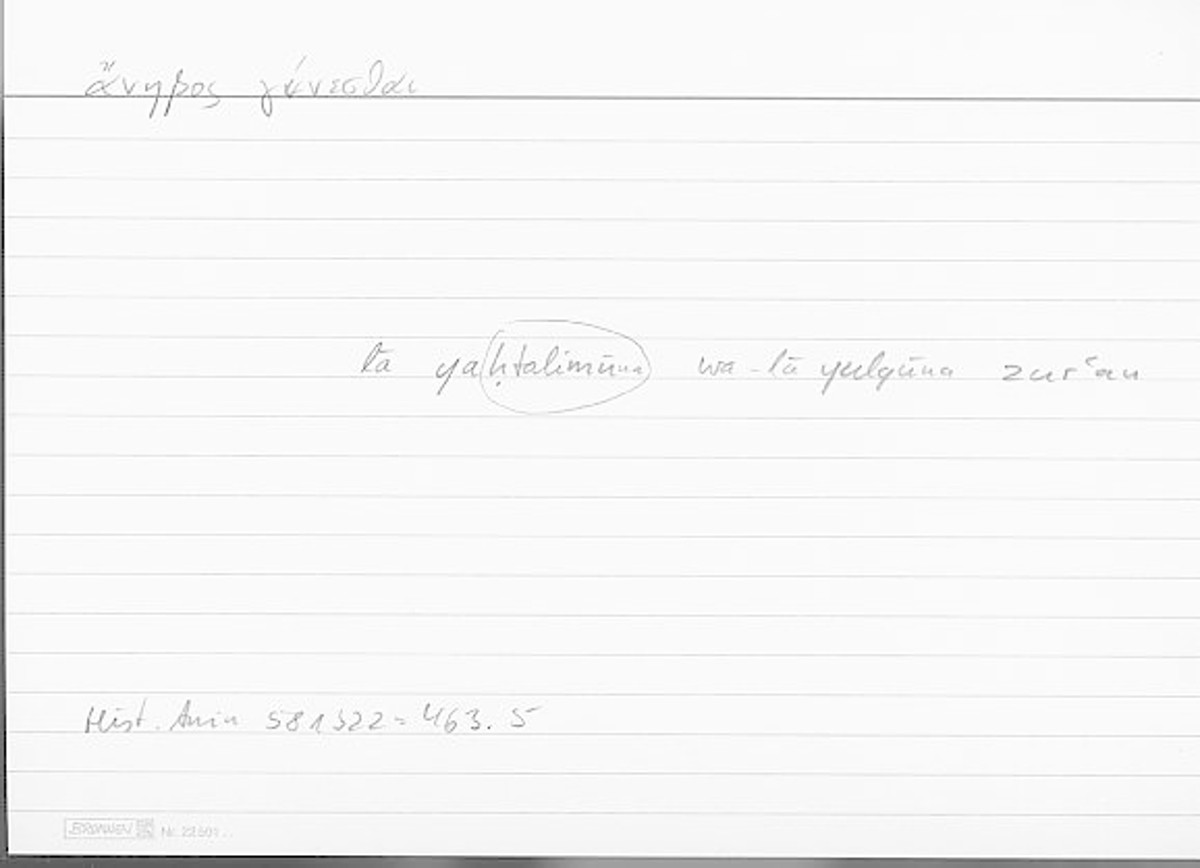 ἄνηβος γίνεσθαι
lā yaḥtalimūna wa-lā yulqūna zurʿan
Hist. Anim 581b22 = 463.5
BRUNNEN Nr. 22 501